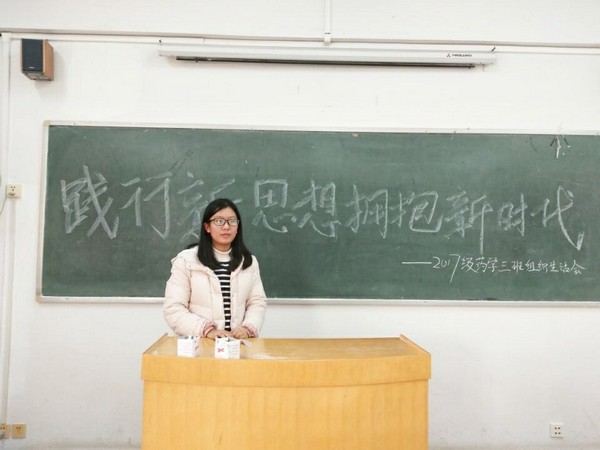 践行新思想拥抱新时代
——2017级药学三班组织生活会